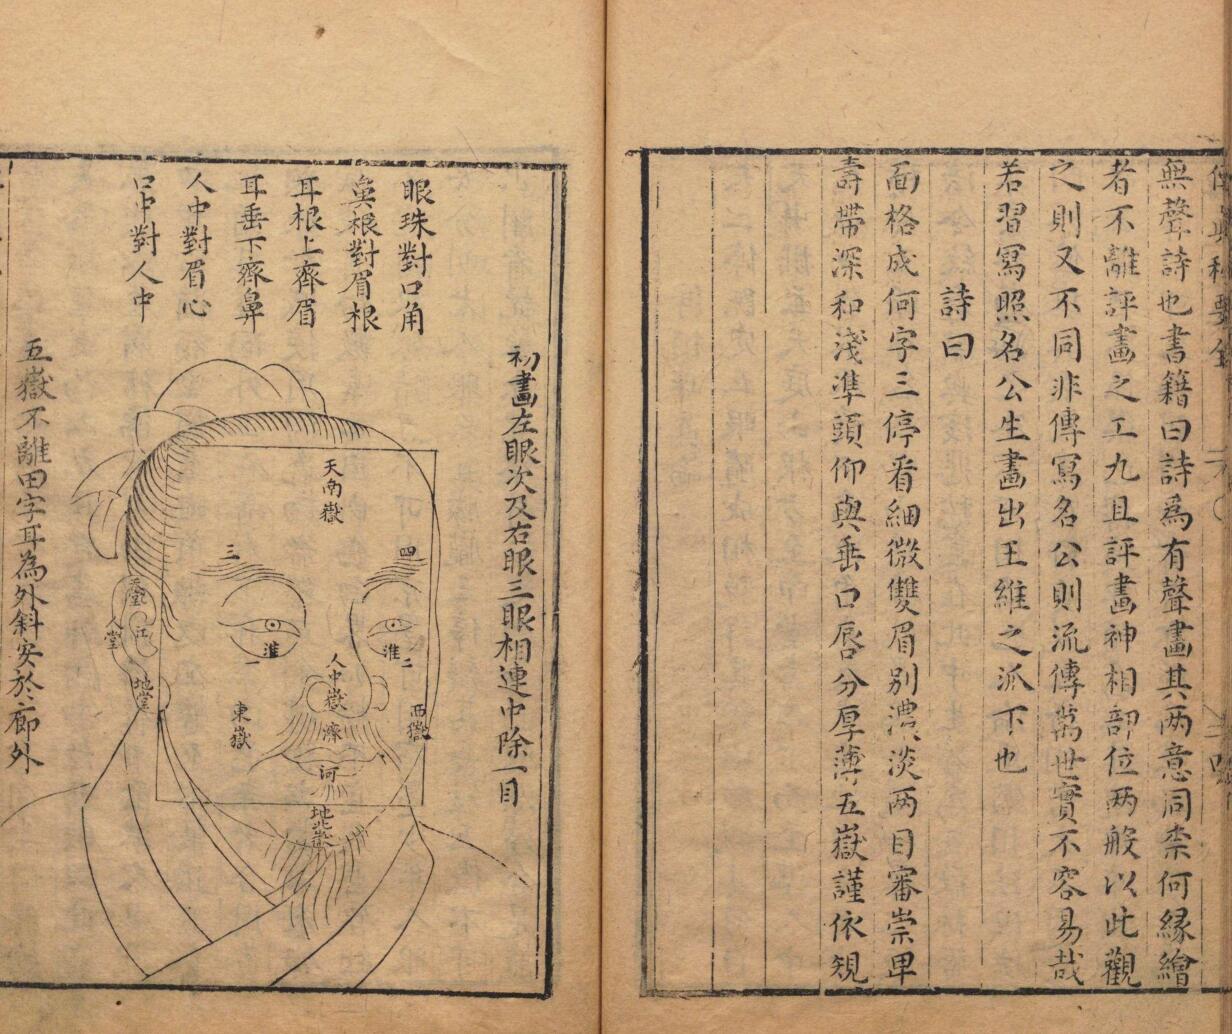 無聲詩也書籍曰詩爲有聲畫其两意同柰何緣繪
者不離評畫之工九且評畫神相部位两般以此觀
之則又不同非傳寫名公則流傳萬世實不容易哉
若習寫照名公生畫出王維之派下也
詩曰
面格成何字三停看細微雙眉别濃淡两目審崇卑
壽帶深和淺準頭仰與垂口唇分厚薄五嶽謹依規
初畫左眼次及右眼三眼相連中除一目
眼珠對口角
鼻根對眉根
耳根上齊眉
耳垂下齊鼻
人中對眉心
口中對人中
五嶽不離田字耳為外斜安於廊外
天南嶽
四
三
淮二
淮一
人中嶽
濟
河
地北嶽
西嶽
東嶽
江
人堂
地堂